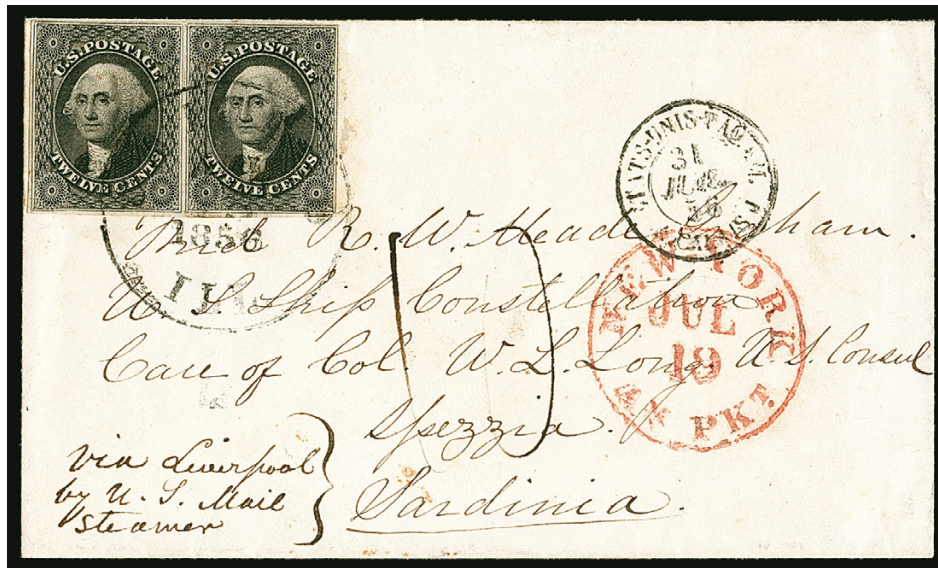 U.S. POSTAGE
TWELVE CENTS
U.S. POSTAGE
TWELVE CENTS
1856
ETATS-UNIS-PAQ.AM.
31
JUIL.
56
NEW YORK
JUL
19
AM PKT.
R. W. Meade
U S Ship Constellation
Care of Col. W. L. Long. U. S. Consul
Spezzia
Sardinia.
via Liverpool
by U. S. Mail
Steamer